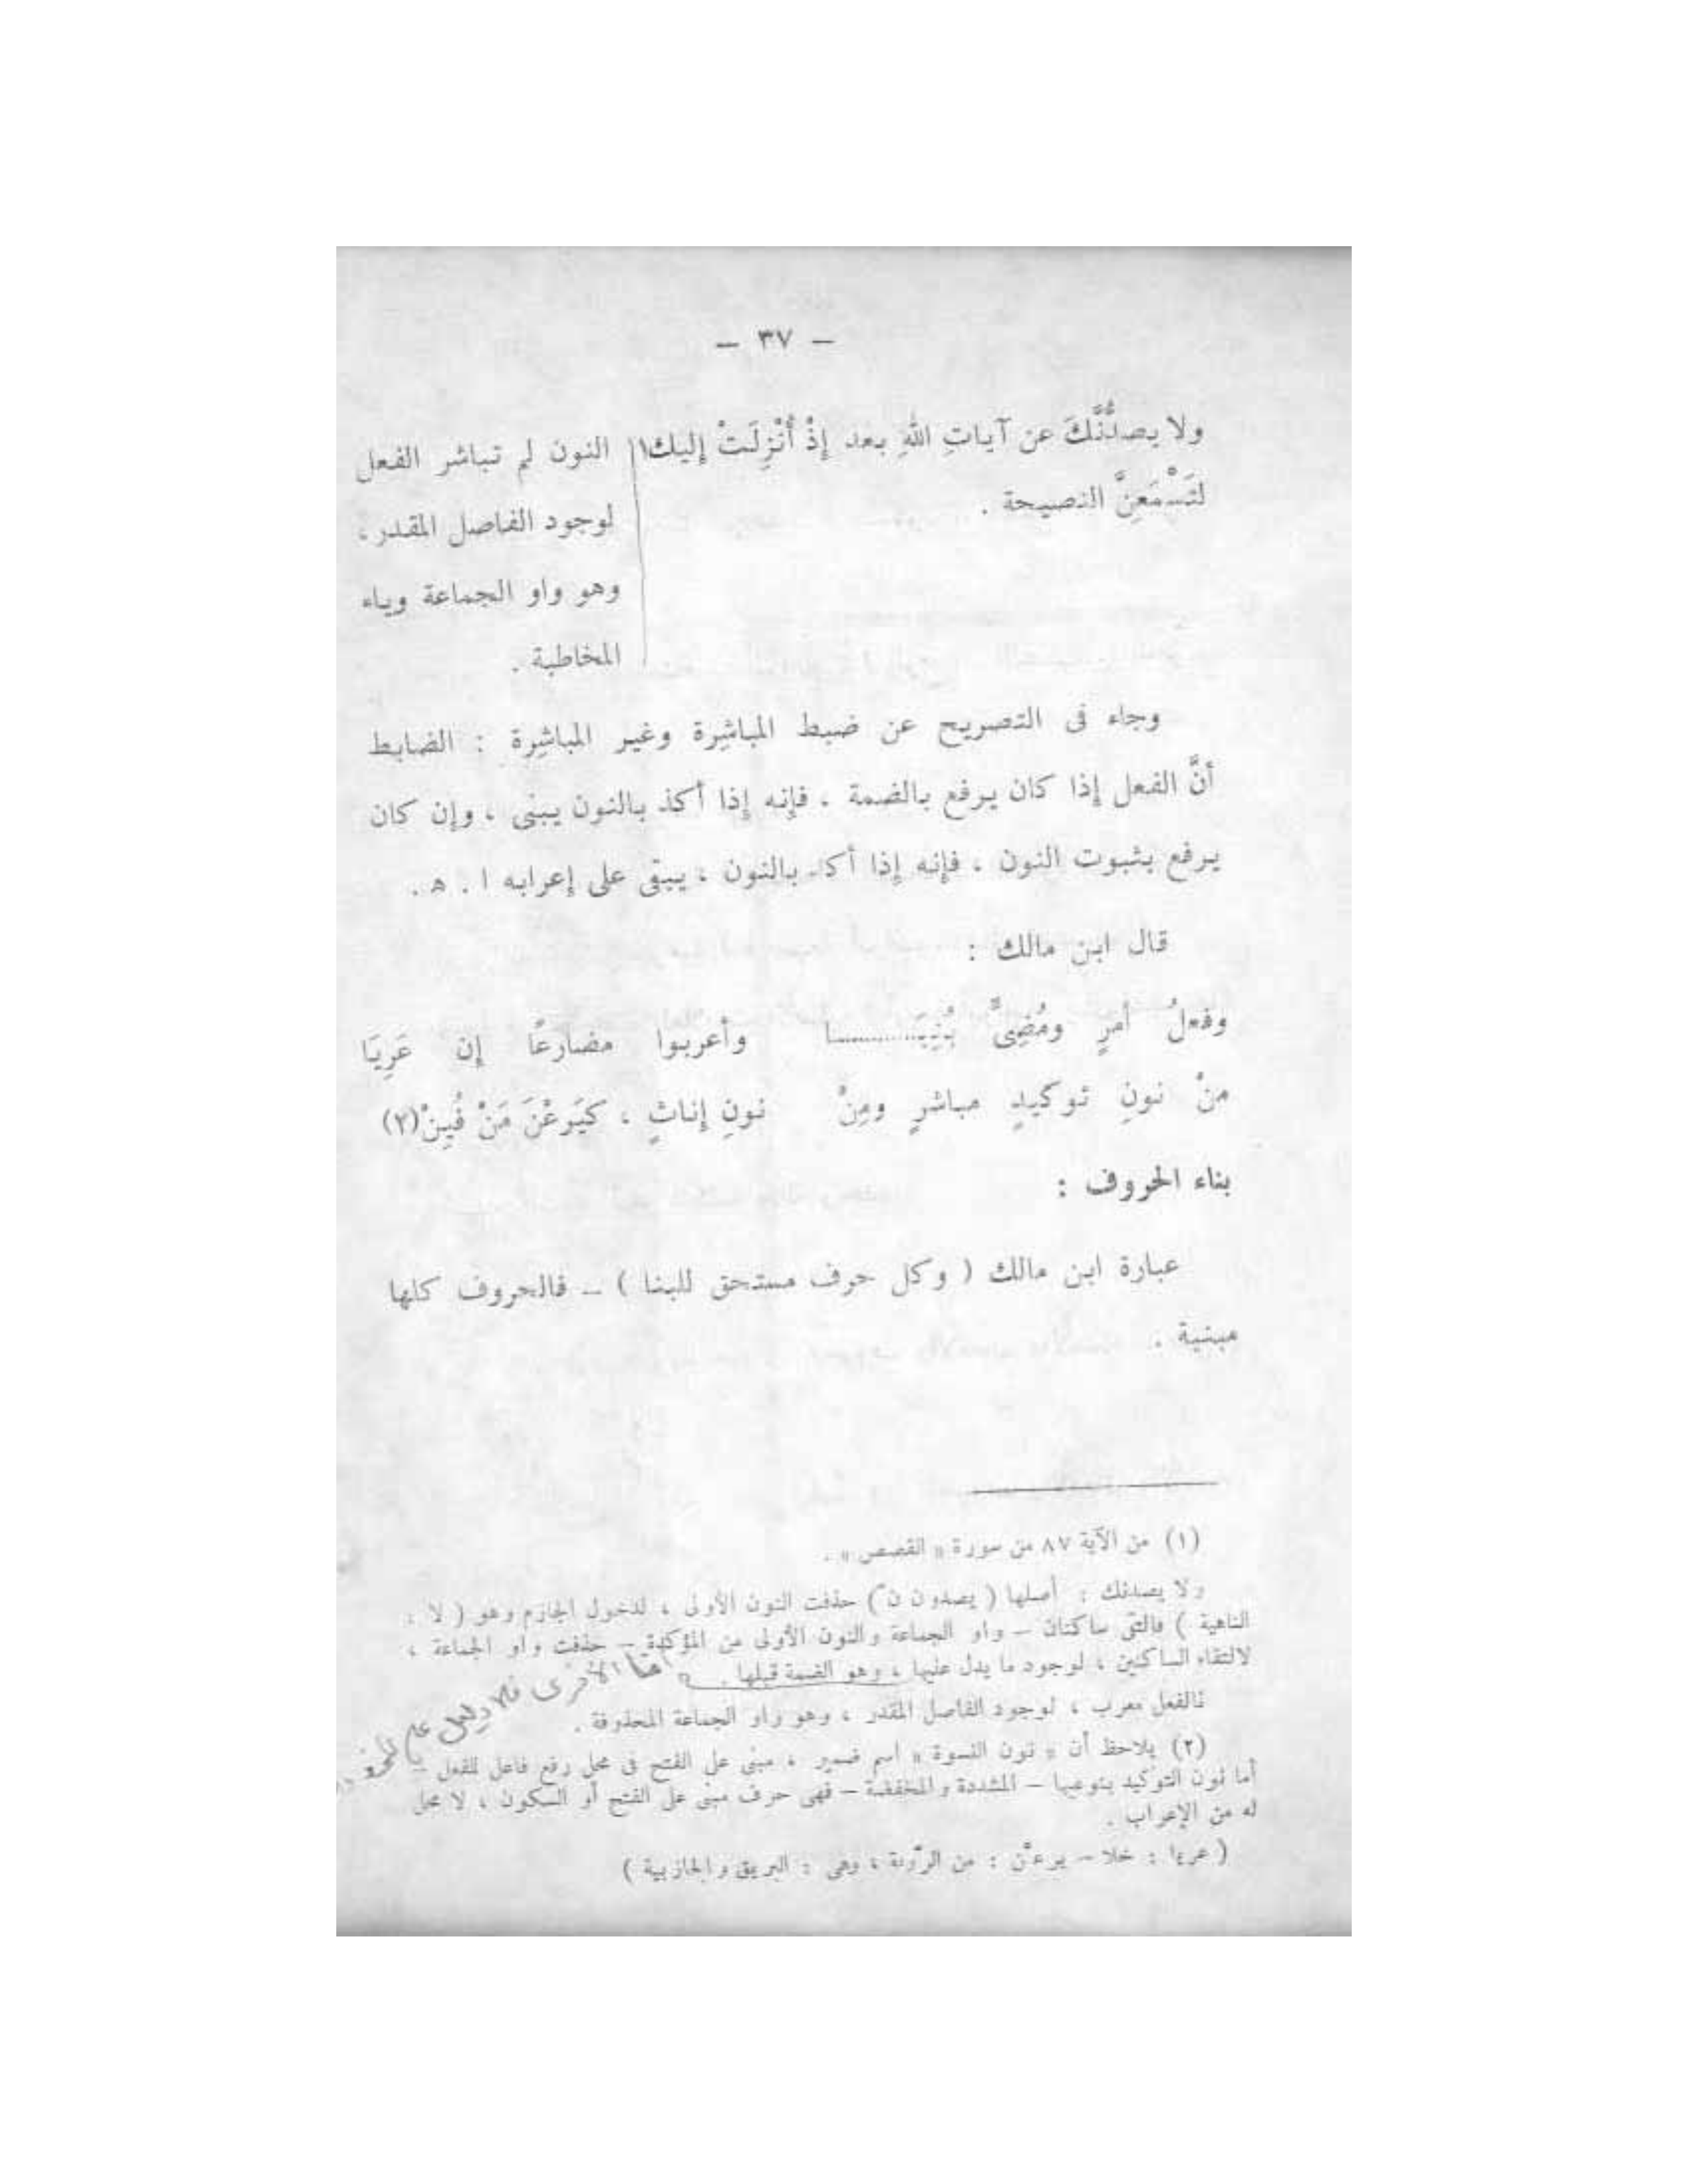 — ٣٧ —
ولا يصدُّنَّكَ عن آياتِ اللهِ بعد إِذْ أُنْزِلَتْ إليك١
لتَسْمَعِنَّ النصيحة .
النون لم تباشر الفعل
لوجود الفاصل المقدر ،
وهو واو الجماعة وياء
المخاطبة .
وجاء فى التصريح عن ضبط المباشِرة وغير المباشِرة : الضابط
أنَّ الفعل إذا كان يرفع بالضمة ، فإنه إذا أكد بالنون يبنى ، وإن كان
يرفع بثبوت النون ، فإنه إذا أكد بالنون ، يبقى على إعرابه ا . ه .
قال ابن مالك :
وفعلُ أمرٍ ومُضِىٍّ بُنِيَـ..........ـا وأعربوا مضارعًا إن عَرِيَا
منْ نونِ توكيدٍ مباشرٍ ومِنْ نونِ إناثٍ ، كيَرعْنَ مَنْ فُتِنْ(٢)
بناء الحروف :
عبارة ابن مالك ( وكل حرف مستحق للبنا ) — فالحروف كلها
مبنية .
(١) من الآية ٨٧ من سورة « القصص » .
ولا يصدنك : أصلها ( يصدون نّ ) حذفت النون الأولى ، لدخول الجازم وهو ( لا :
الناهية ) فالتقى ساكنان — واو الجماعة والنون الأولى من المؤكدة — حذفت واو الجماعة ،
لالتقاء الساكنين ، لوجود ما يدل عليها ، وهو الضمة قبلها .
أما الأخرى فلا دليل على
فالفعل معرب ، لوجود الفاصل المقدر ، وهو واو الجماعة المحذوفة .
(٢) يلاحظ أن « نون النسوة » اسم ضمير ، مبنى على الفتح فى محل رفع فاعل للفعل —
أما نون التوكيد بنوعيها — المشددة والمخففة — فهى حرف مبنى على الفتح أو السكون ، لا محل
له من الإعراب .
( عريا : خلا — يرعْن : من الرّوعة ، وهى : البريق والجاذبية )